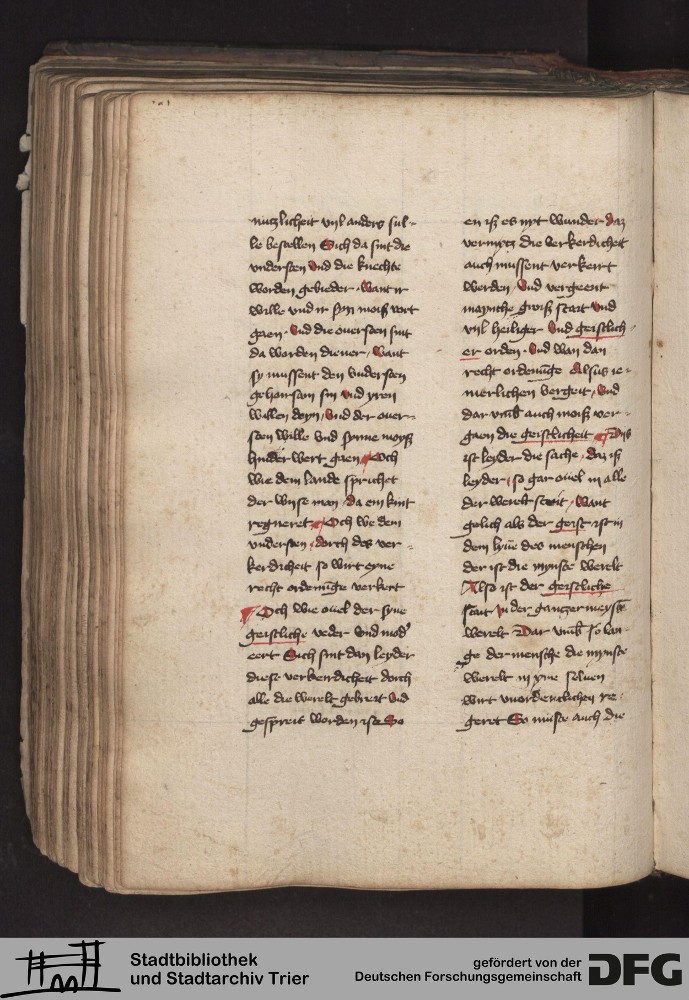 nutzlicheit vnd anders sul-
le bestellen Sich da sint die
vndersten Vnd die knechte
worden gebieder · Want ir
wille vnd ir syn moiß vort
gaen · Vnd die ouersten sint
da worden diener / Want
sy mussent den vndersten
gehorsam sin vnd yren
willen doyn / Vnd der ouer-
sten wille vnd synne moyß
hinder wert gaen Och
wie dem lande sprichet
der wyse man / da ein kint
regneret Och we dem
vndersten / dorch des ver-
kerdicheit so wirt eyne
recht ordenunge verkert
Och wie ouel der syne
geistliche veder vnd mod'
eert Sich sint dan leyder
diese verkerdicheit dorch
alle die werelt gebreit vnd
gespreit worden ist So
en iß es nyt wunder daz
vermytz die verkerdicheit
auch mussent verkeirt
werden / Vnd vergeent
maynche groiß stait vnd
vyl heiliger Vnd geistlich-
er orden · Vnd wan dan
recht ordenunge Alsus ie-
merlichen vergeit / Vnd
dar vmb auch moiß ver-
gaen die geistlicheit Dis
ist leyder die sache / daz iß
leyder / so gar ouel in alle
der werelt steit / Want
gelich als der geist ist in
dem lyue des menschen
der ist die mynste werelt
Also ist der geistliche
stait in der gantzer meyste
werelt Dar vmb so lan-
ge der mensche die mynste
werelt in yme seluen
wirt vnordentlichen re-
geret So muste auch die
Stadtbibliothek
und Stadtarchiv Trier
gefördert von der
Deutschen Forschungsgemeinschaft
DFG